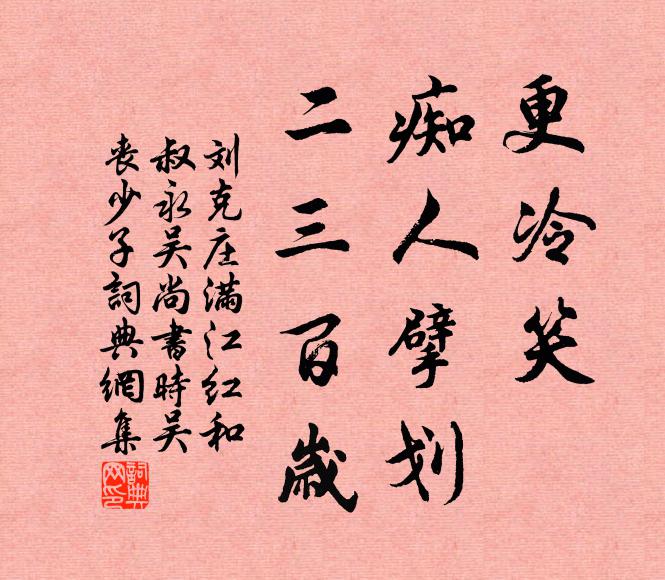 更冷笑
痴人擘划
二三百岁
刘克庄满江红和
叔永吴尚书时吴
丧少子詞典網集
詞典网印